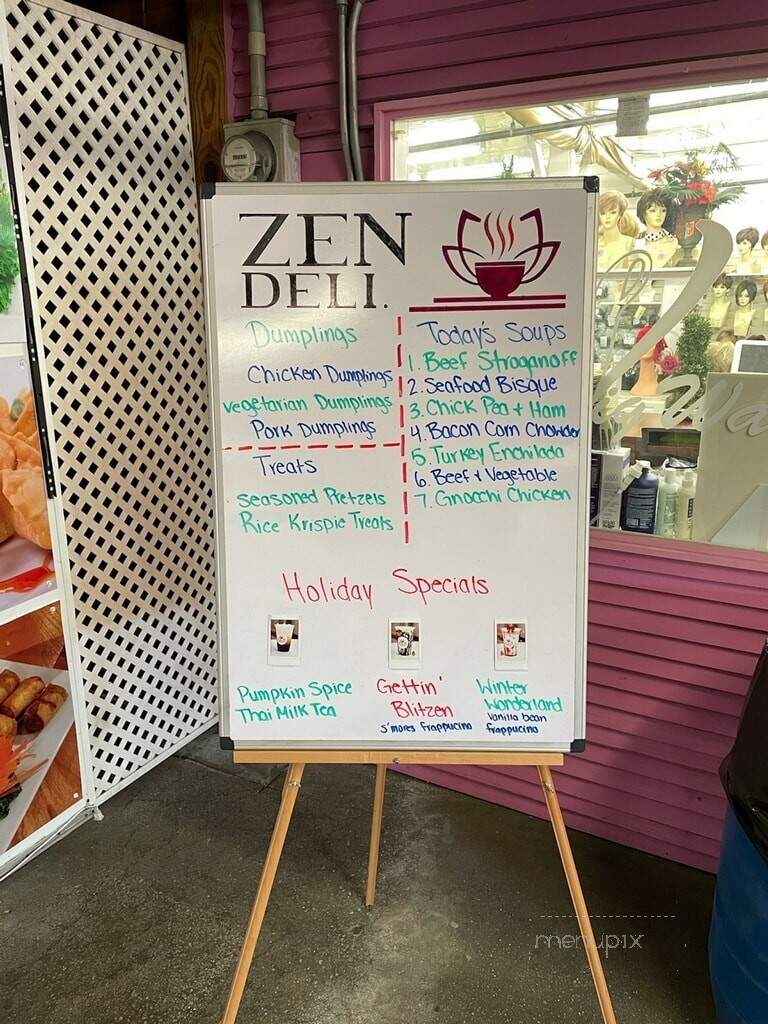 ZEN
DELI.
Dumplings
Chicken Dumplings
Vegetarian Dumplings
Pork Dumplings
Treats
Seasoned Pretzels
Rice Krispie Treats
Today's Soups
1. Beef Straganoff
2. Seafood Bisque
3. Chick Pea + Ham
4. Bacon Corn Chowder
5. Turkey Enchilada
6. Beef + Vegetable
7. Gnocchi Chicken
Holiday Specials
Pumpkin Spice
Thai Milk Tea
Gettin'
Blitzen
S'mores frappucino
Winter
Wonderland
Vanilla bean
frappucino
menupix